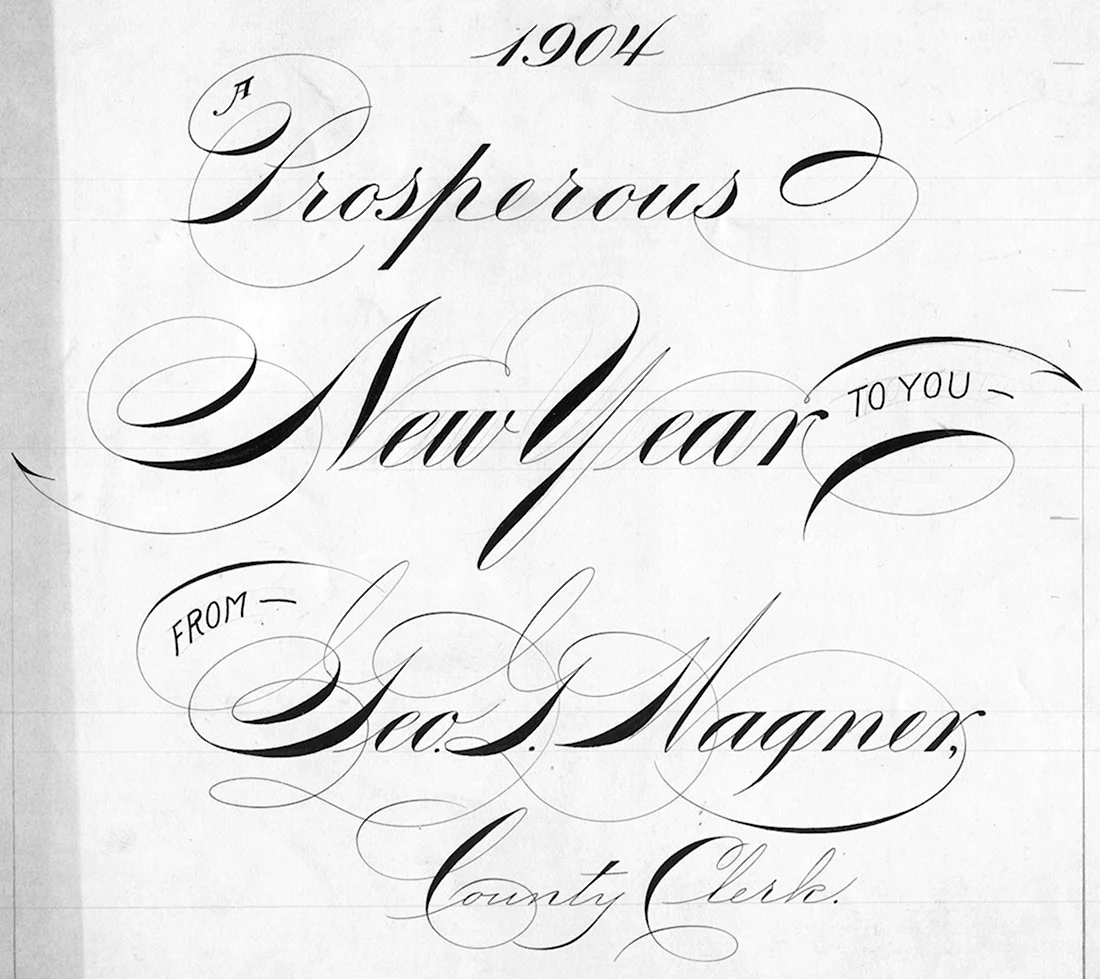 1904
A Prosperous
New Year TO YOU —
FROM —
Geo. S. Wagner,
County Clerk.